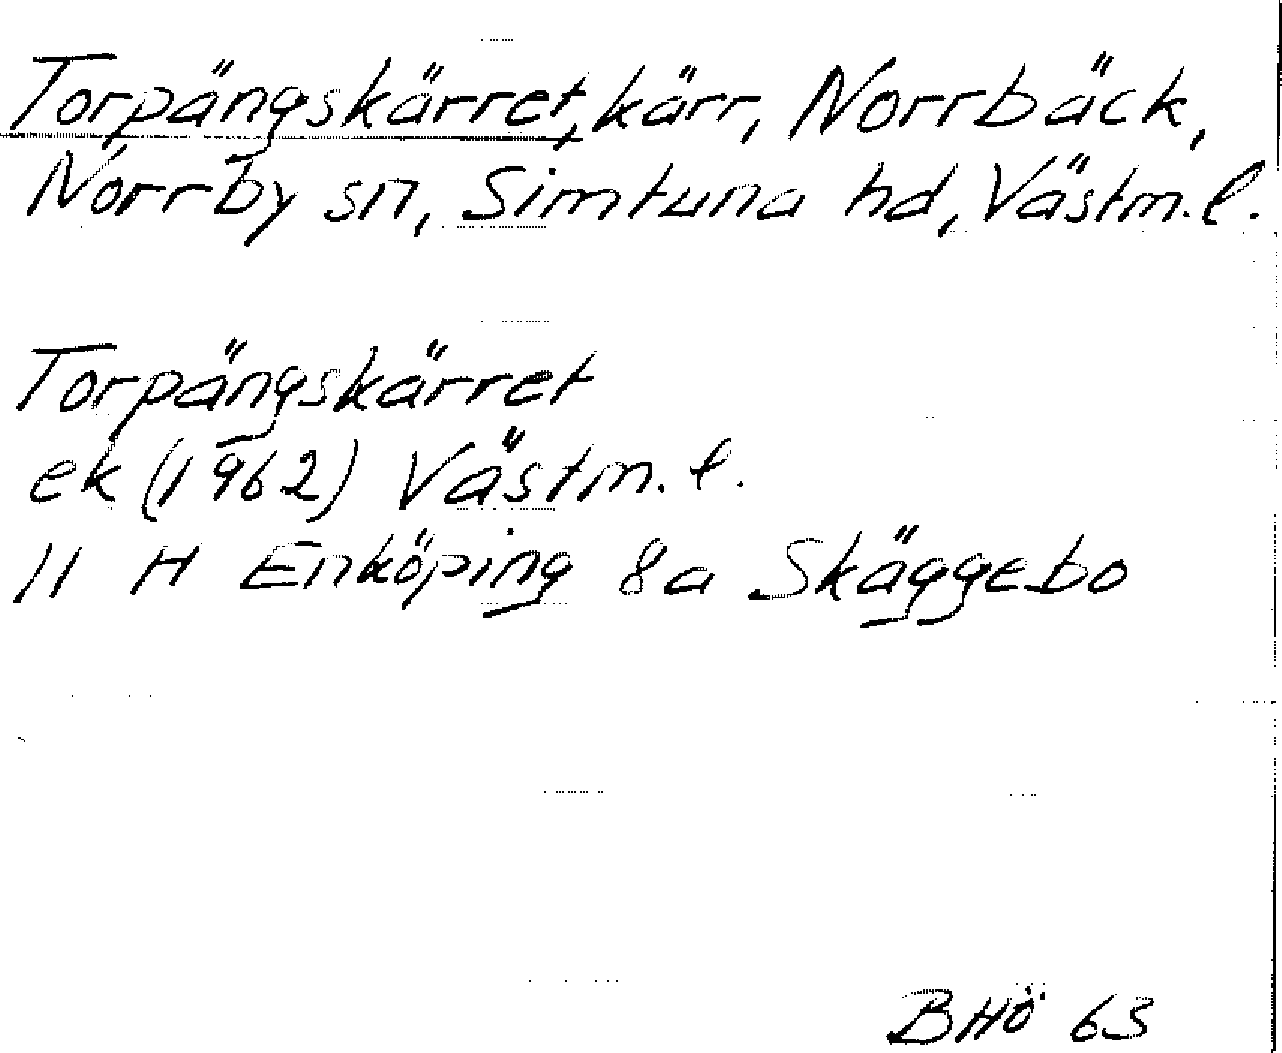 Torpängskärret, kärr, Norrbäck,
Norrby sn, Simtuna hd, Västm. l.
Torpängskärret
ek (1962) Västm. l.
11 H Enköping 8a Skäggebo
BHÖ 63